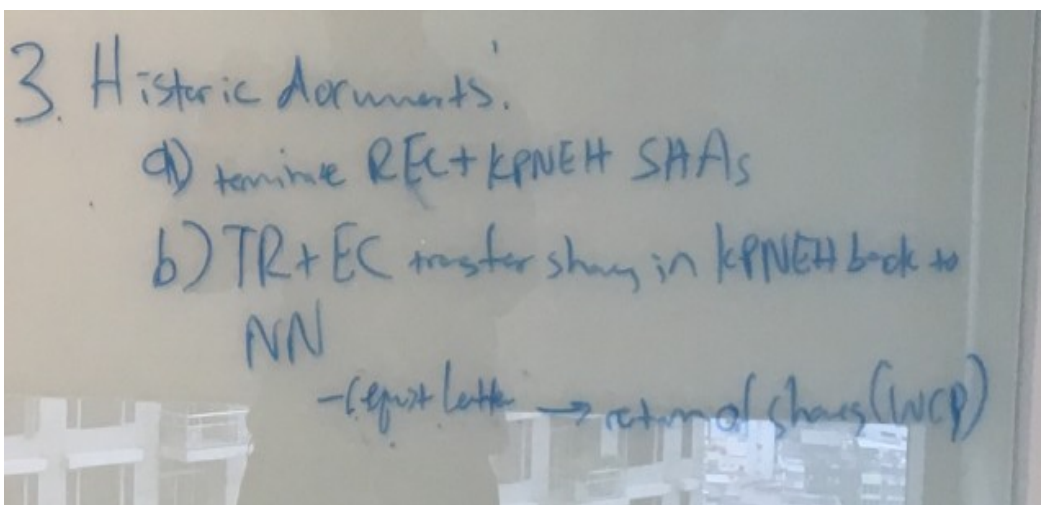 3. Historic documents.
a) terminate REC + KPNEH SHAs
b) TR + EC transfer shares in KPNEH back to
NN
- request letter → return of shares (WCP)